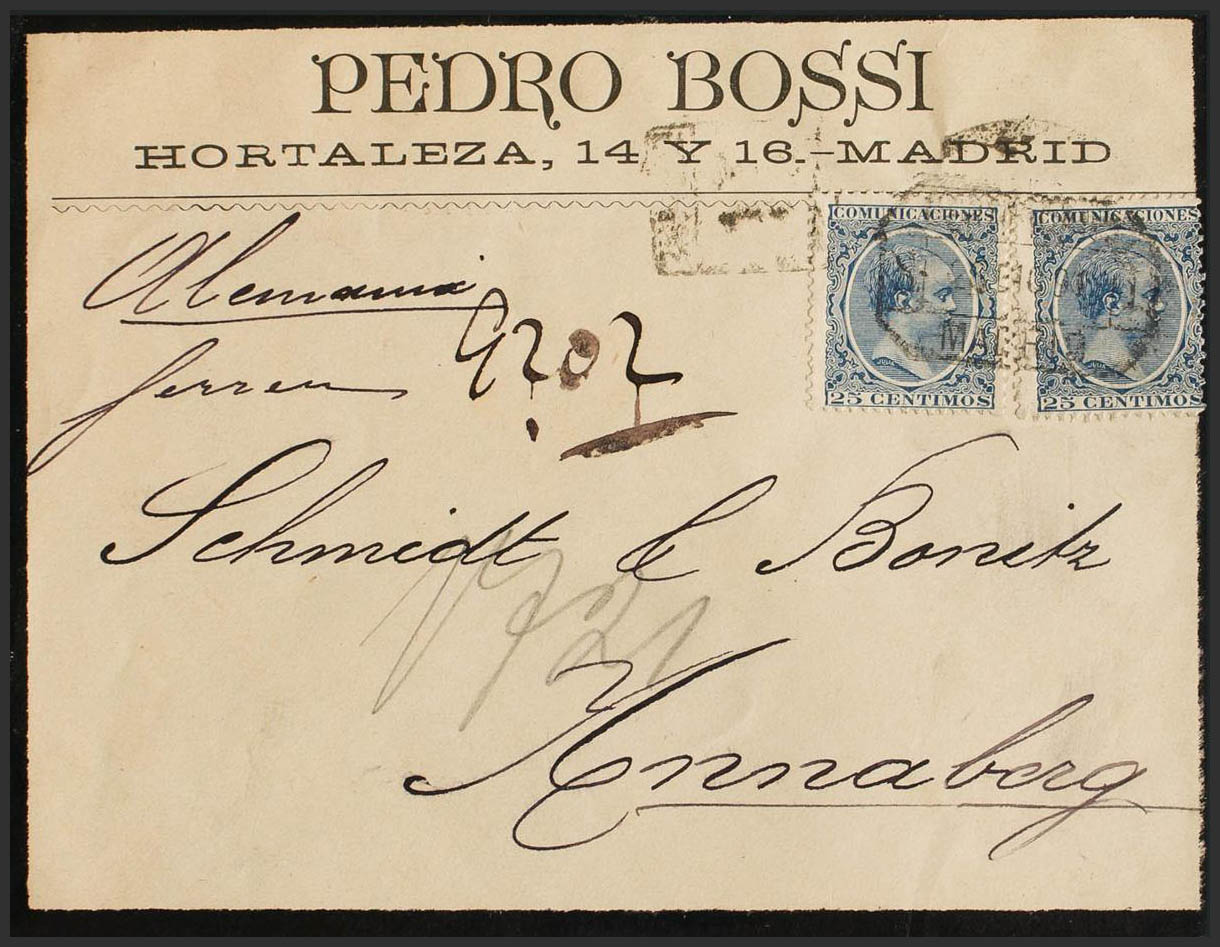 PEDRO BOSSI
HORTALEZA, 14 Y 16.-MADRID
COMUNICACIONES COMUNICACIONES
MADRID
25 CENTIMOS 25 CENTIMOS
Alemania
Herren
Schmidt & Bonitz
Annaberg